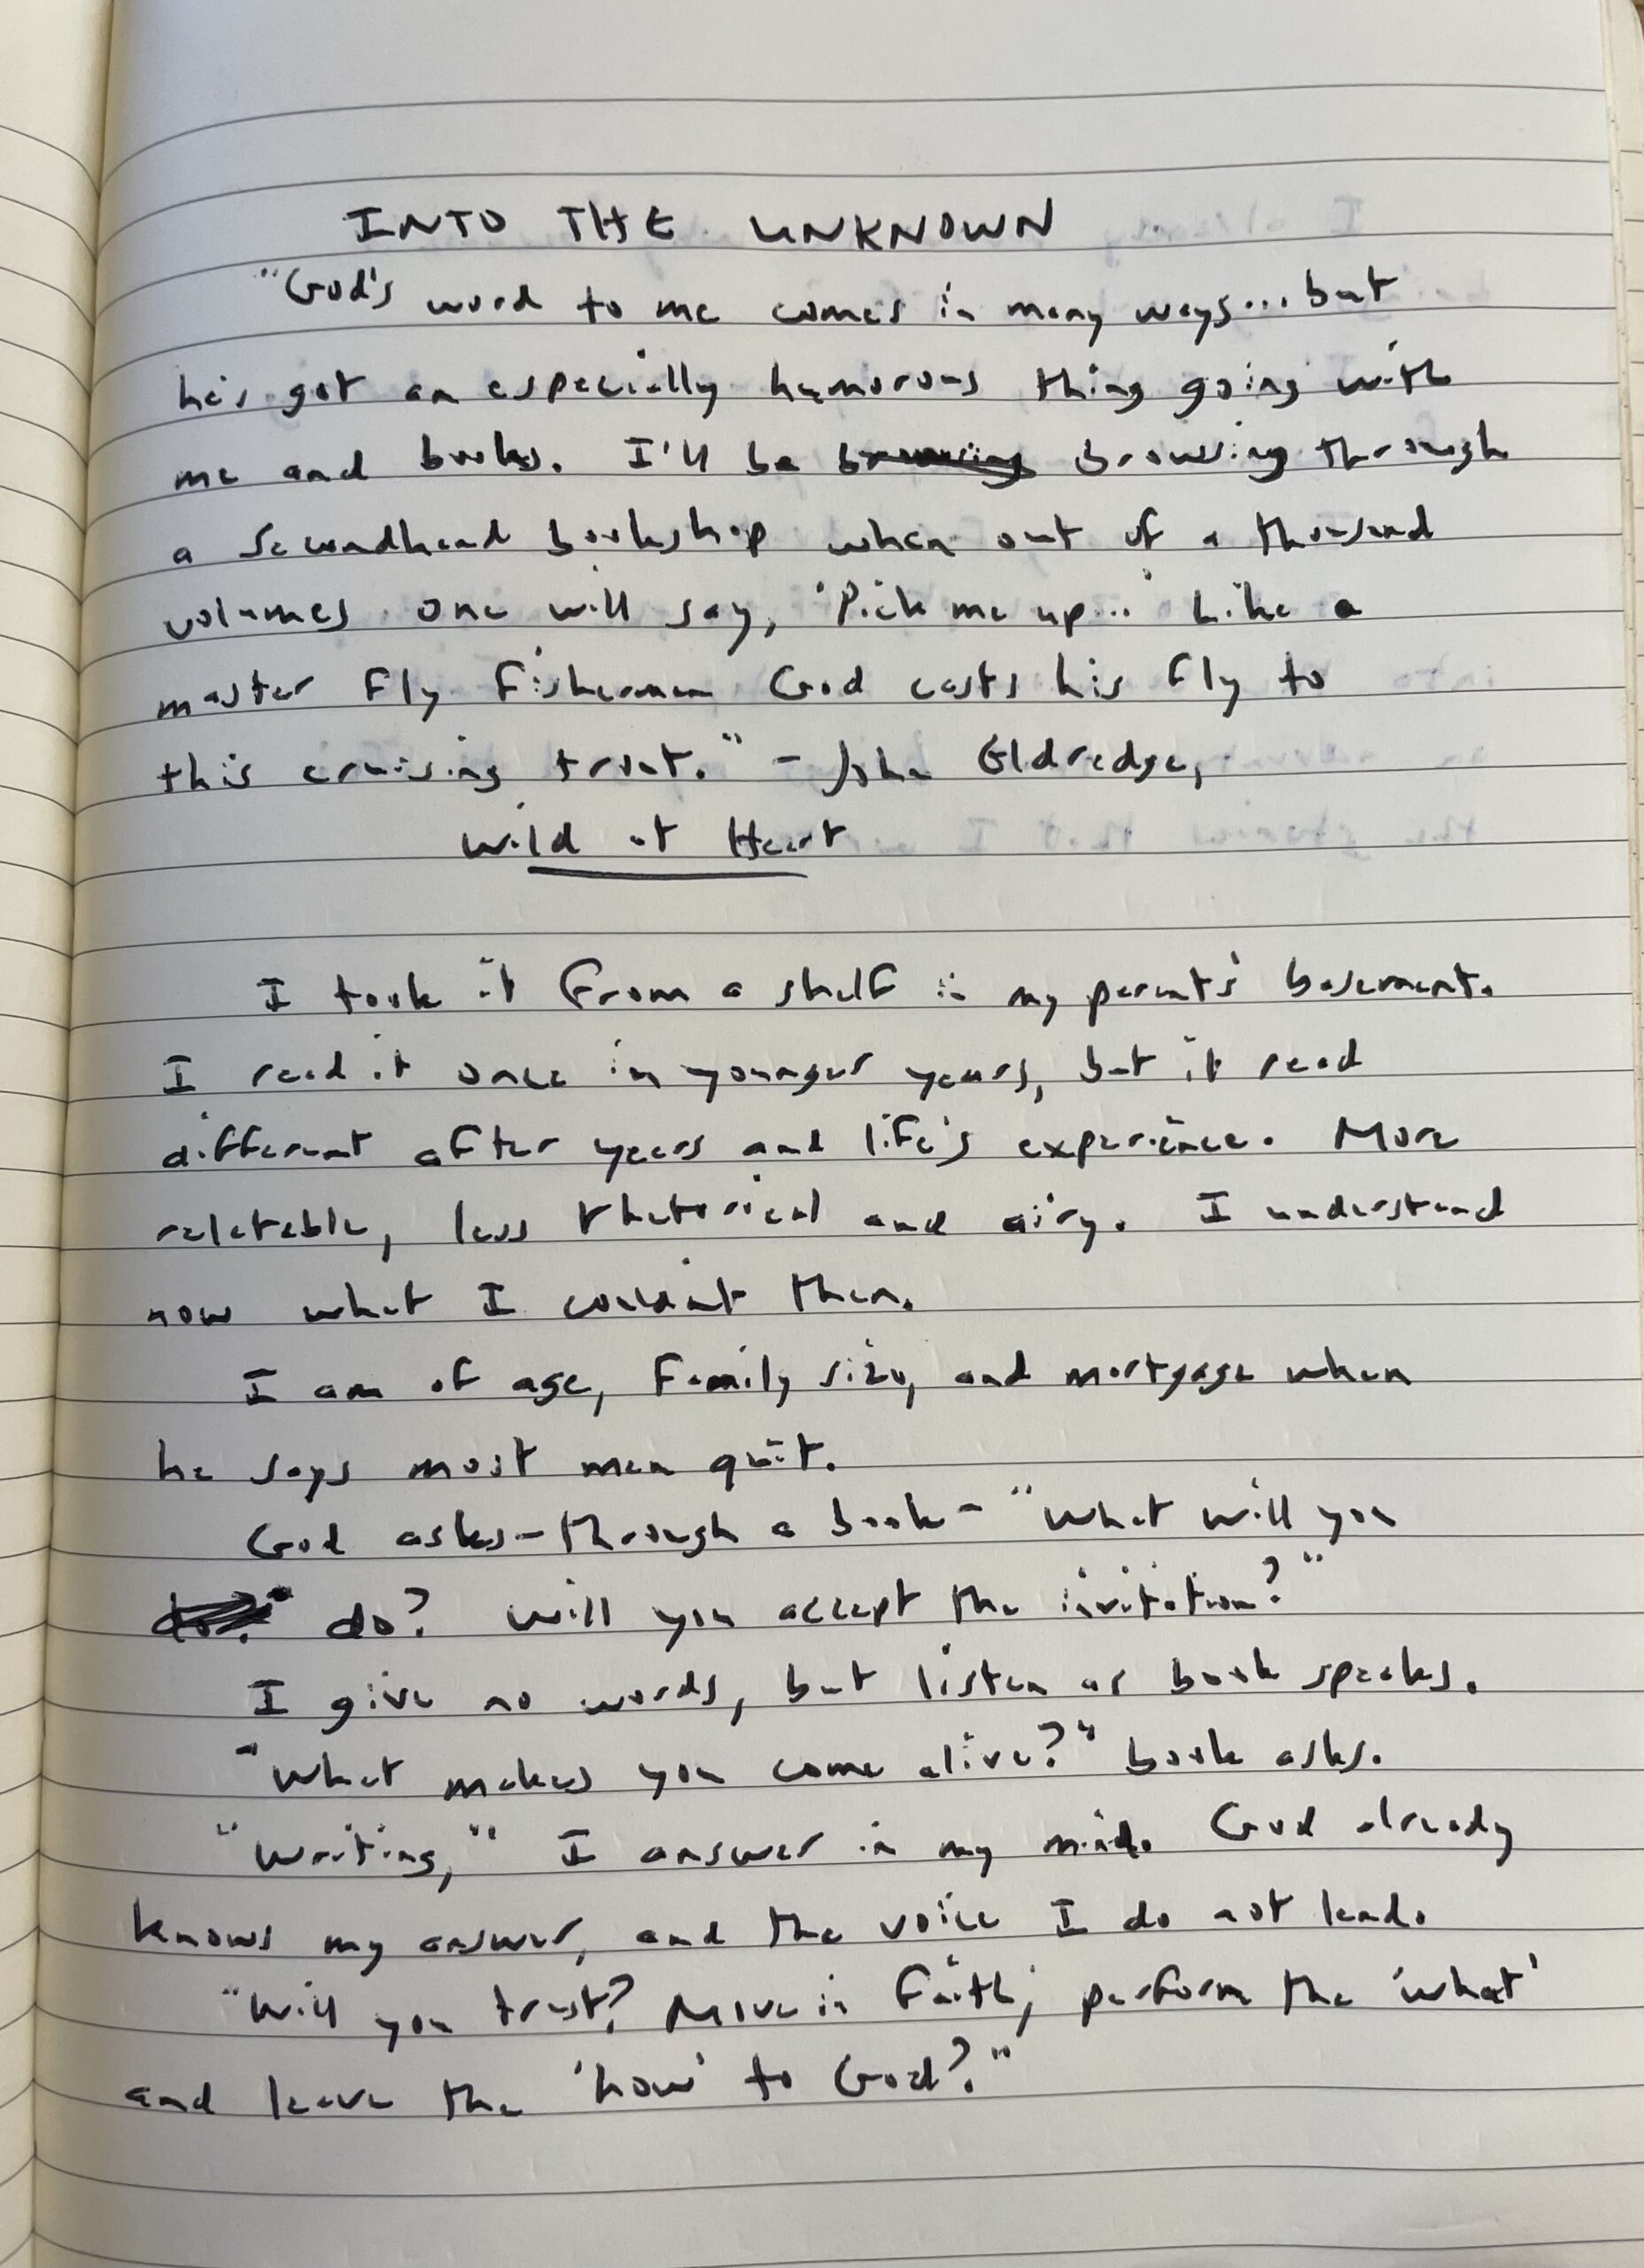 INTO THE UNKNOWN
"God's word to me comes in many ways... but
he's got an especially humorous thing going with
me and books. I'll be browsing through
a secondhand bookshop when out of a thousand
volumes one will say, 'Pick me up...' Like a
master fly fisherman God casts his fly to
this cruising trout." - John Eldredge,
Wild at Heart
I took it from a shelf in my parents' basement.
I read it once in younger years, but it read
different after years and life's experience. More
relatable, less rhetorical and airy. I understand
now what I couldn't then.
I am of age, family size, and mortgage when
he says most men quit.
God asks - through a book - "What will you
do? Will you accept the invitation?"
I give no words, but listen as book speaks.
"What makes you come alive?" book asks.
"Writing," I answer in my mind. God already
knows my answer, and the voice I do not lend.
"Will you trust? Move in faith; perform the 'what'
and leave the 'how' to God?"